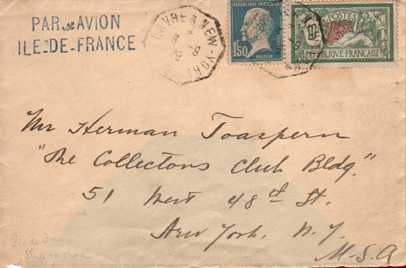 PAR AVION
ILE-DE-FRANCE
HAVRE A NEW-YORK
REPUBLIQUE FRANÇAISE
1F50
PASTEUR
POSTES
10F
REPUBLIQUE FRANÇAISE
Mr Herman Toaspern
"The Collectors Club Bldg."
51 West 48th St.
New York, N.Y.
U.S.A